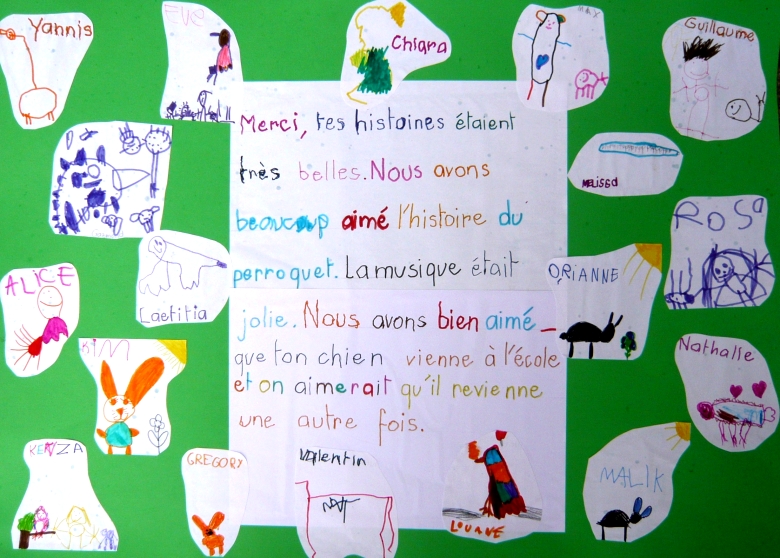 Yannis
EVE
Chiara
MAX
Guillaume
Merci, tes histoires étaient
très belles. Nous avons
beaucoup aimé l'histoire du
perroquet. La musique était
jolie. Nous avons bien aimé
que ton chien vienne à l'école
et on aimerait qu'il revienne
une autre fois.
MELISSA
ROSA
Laetitia
ALICE
ORIANNE
KIM
Nathalie
KENZA
GREGORY
Valentin
LOUANE
MALIK